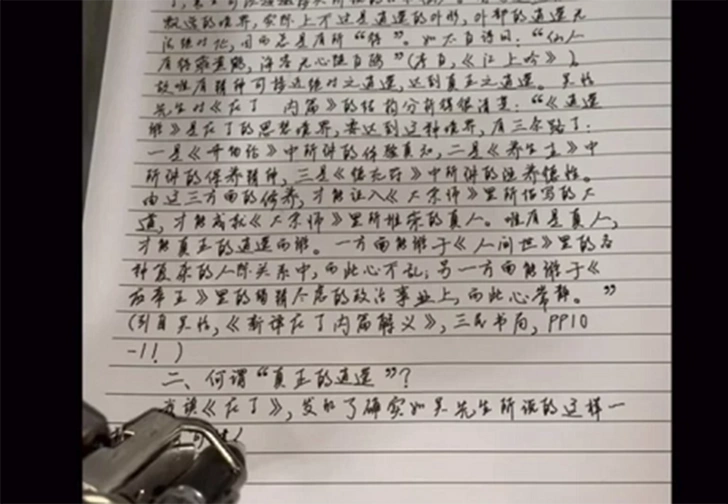 飘逸的境界，实际上不过是逍遥的外形，外部的逍遥无
法绝对化，因而总是有所“待”。如太白诗曰：“仙人
有待乘黄鹤，海客无心随白鸥”（李白，《江上吟》）。
故唯有精神可接近绝对之逍遥，达到真正之逍遥。吴怡
先生对《庄子 内篇》的结构分析得很清楚：“《逍遥
游》是庄子的思想境界，要达到这种境界，有三条路子：
一是《齐物论》中所讲的体验真知，二是《养生主》中
所讲的保养精神，三是《德充符》中所讲的涵养德性。
由这三方面的修养，才能证入《大宗师》里所描写的大
道，才能成就《大宗师》里所推崇的真人。唯有是真人，
才能真正的逍遥而游。一方面能游于《人间世》里的各
种复杂的人际关系中，而此心不乱；另一方面能游于《
应帝王》里的殚精尽虑的政治事业上，而此心常静。”
（引自吴怡，《新译庄子内篇解义》，三民书局，PP10
-11）
二、何谓“真正的逍遥”？
我读《庄子》，发现了确实如吴先生所说的这样一